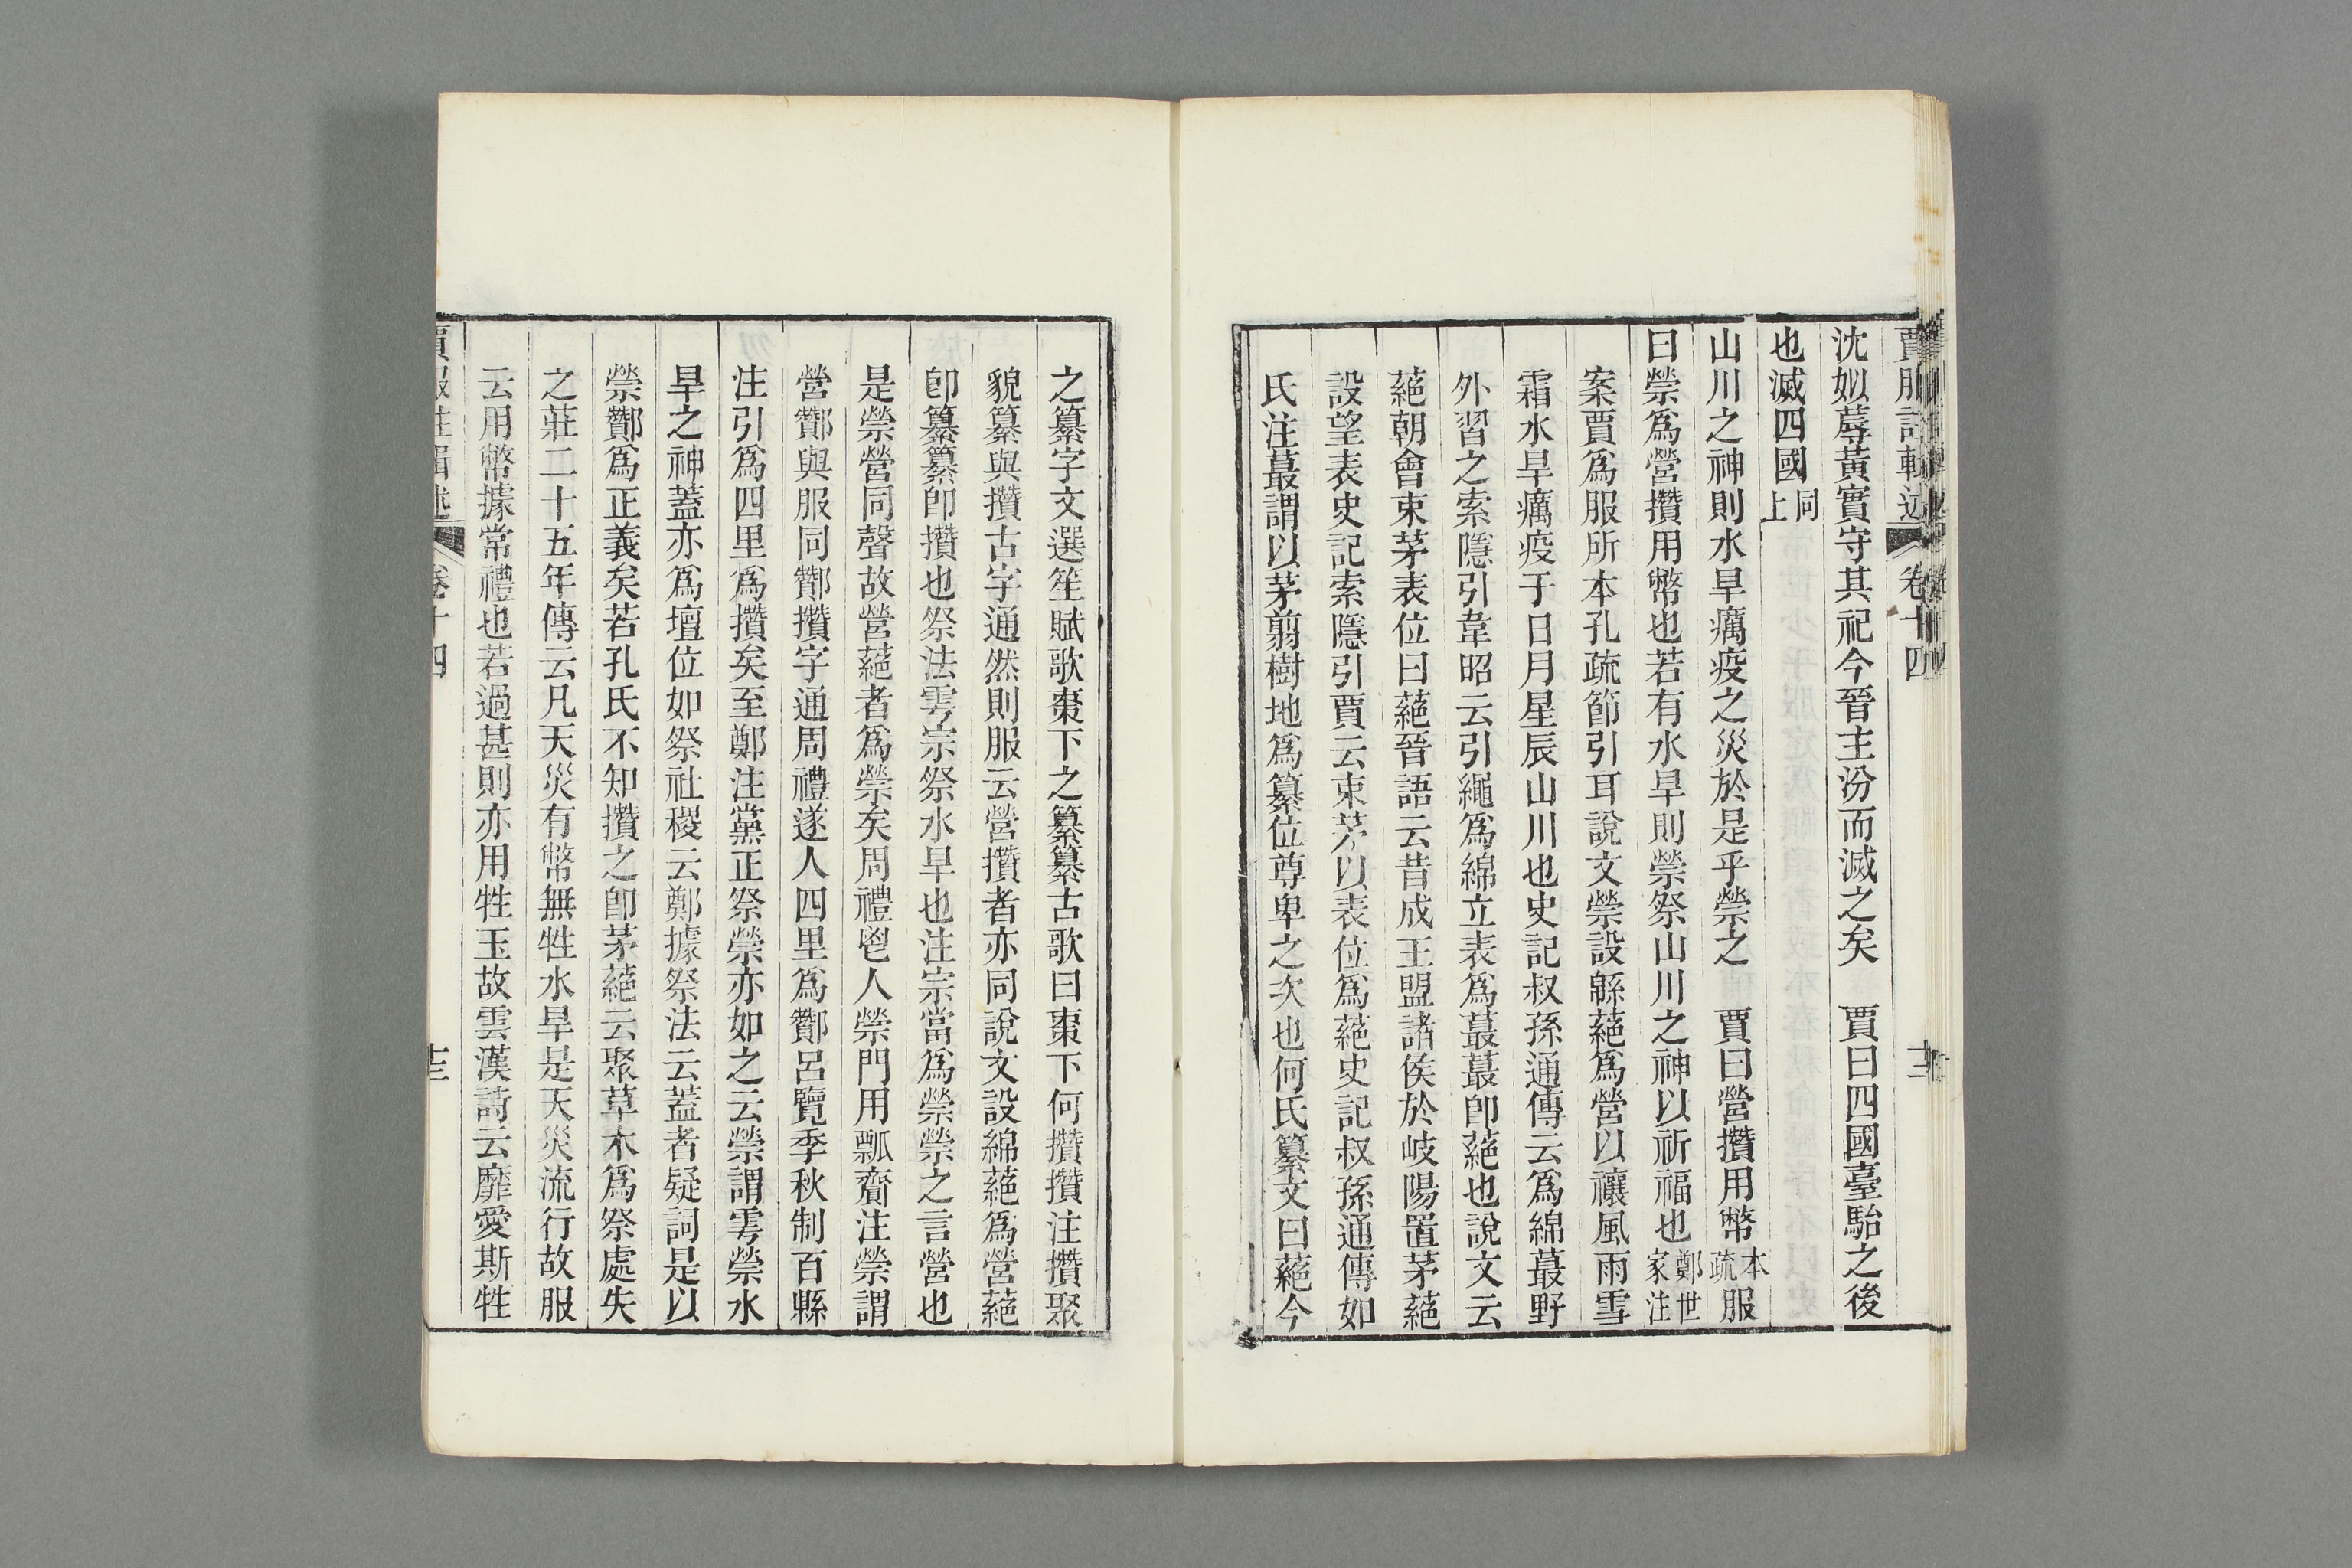 賈服註輯述 卷十四 十二
沈姒蓐黃實守其祀今晉主汾而滅之矣 賈曰四國臺駘之後
也滅四國同上
山川之神則水旱癘疫之災於是乎禜之 賈曰營攢用幣本疏服
曰禜爲營攢用幣也若有水旱則禜祭山川之神以祈福也鄭世家注
案賈爲服所本孔疏節引耳說文禜設緜蕝爲營以禳風雨雪
霜水旱癘疫于日月星辰山川也史記叔孫通傳云爲綿蕞野
外習之索隱引韋昭云引繩爲綿立表爲蕞蕞卽蕝也說文云
蕝朝會束茅表位曰蕝晉語云昔成王盟諸侯於岐陽置茅蕝
設望表史記索隱引賈云束茅以表位爲蕝史記叔孫通傳如
氏注蕞謂以茅翦樹地爲纂位尊卑之次也何氏纂文曰蕝今
之纂字文選笙賦歌棗下之纂纂古歌曰棗下何攢攢注攢聚
貌纂與攢古字通然則服云營攢者亦同說文設綿蕝爲營蕝
卽纂纂卽攢也祭法雩宗祭水旱也注宗當爲禜禜之言營也
是禜營同聲故營蕝者爲禜矣周禮鬯人禜門用瓢齎注禜謂
營酇與服同酇攢字通周禮遂人四里爲酇呂覽季秋制百縣
注引爲四里爲攢矣至鄭注黨正祭禜亦如之云禜謂雩禜水
旱之神蓋亦爲壇位如祭社稷云鄭據祭法云蓋者疑詞是以
禜酇爲正義矣若孔氏不知攢之卽茅蕝云聚草木爲祭處失
之莊二十五年傳云凡天災有幣無牲水旱是天災流行故服
云用幣據常禮也若過甚則亦用牲玉故雲漢詩云靡愛斯牲
卷十四 十三